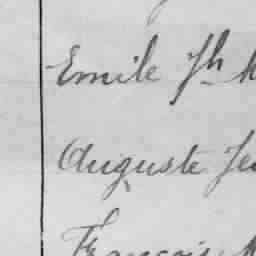 Emile Jh
Auguste
François